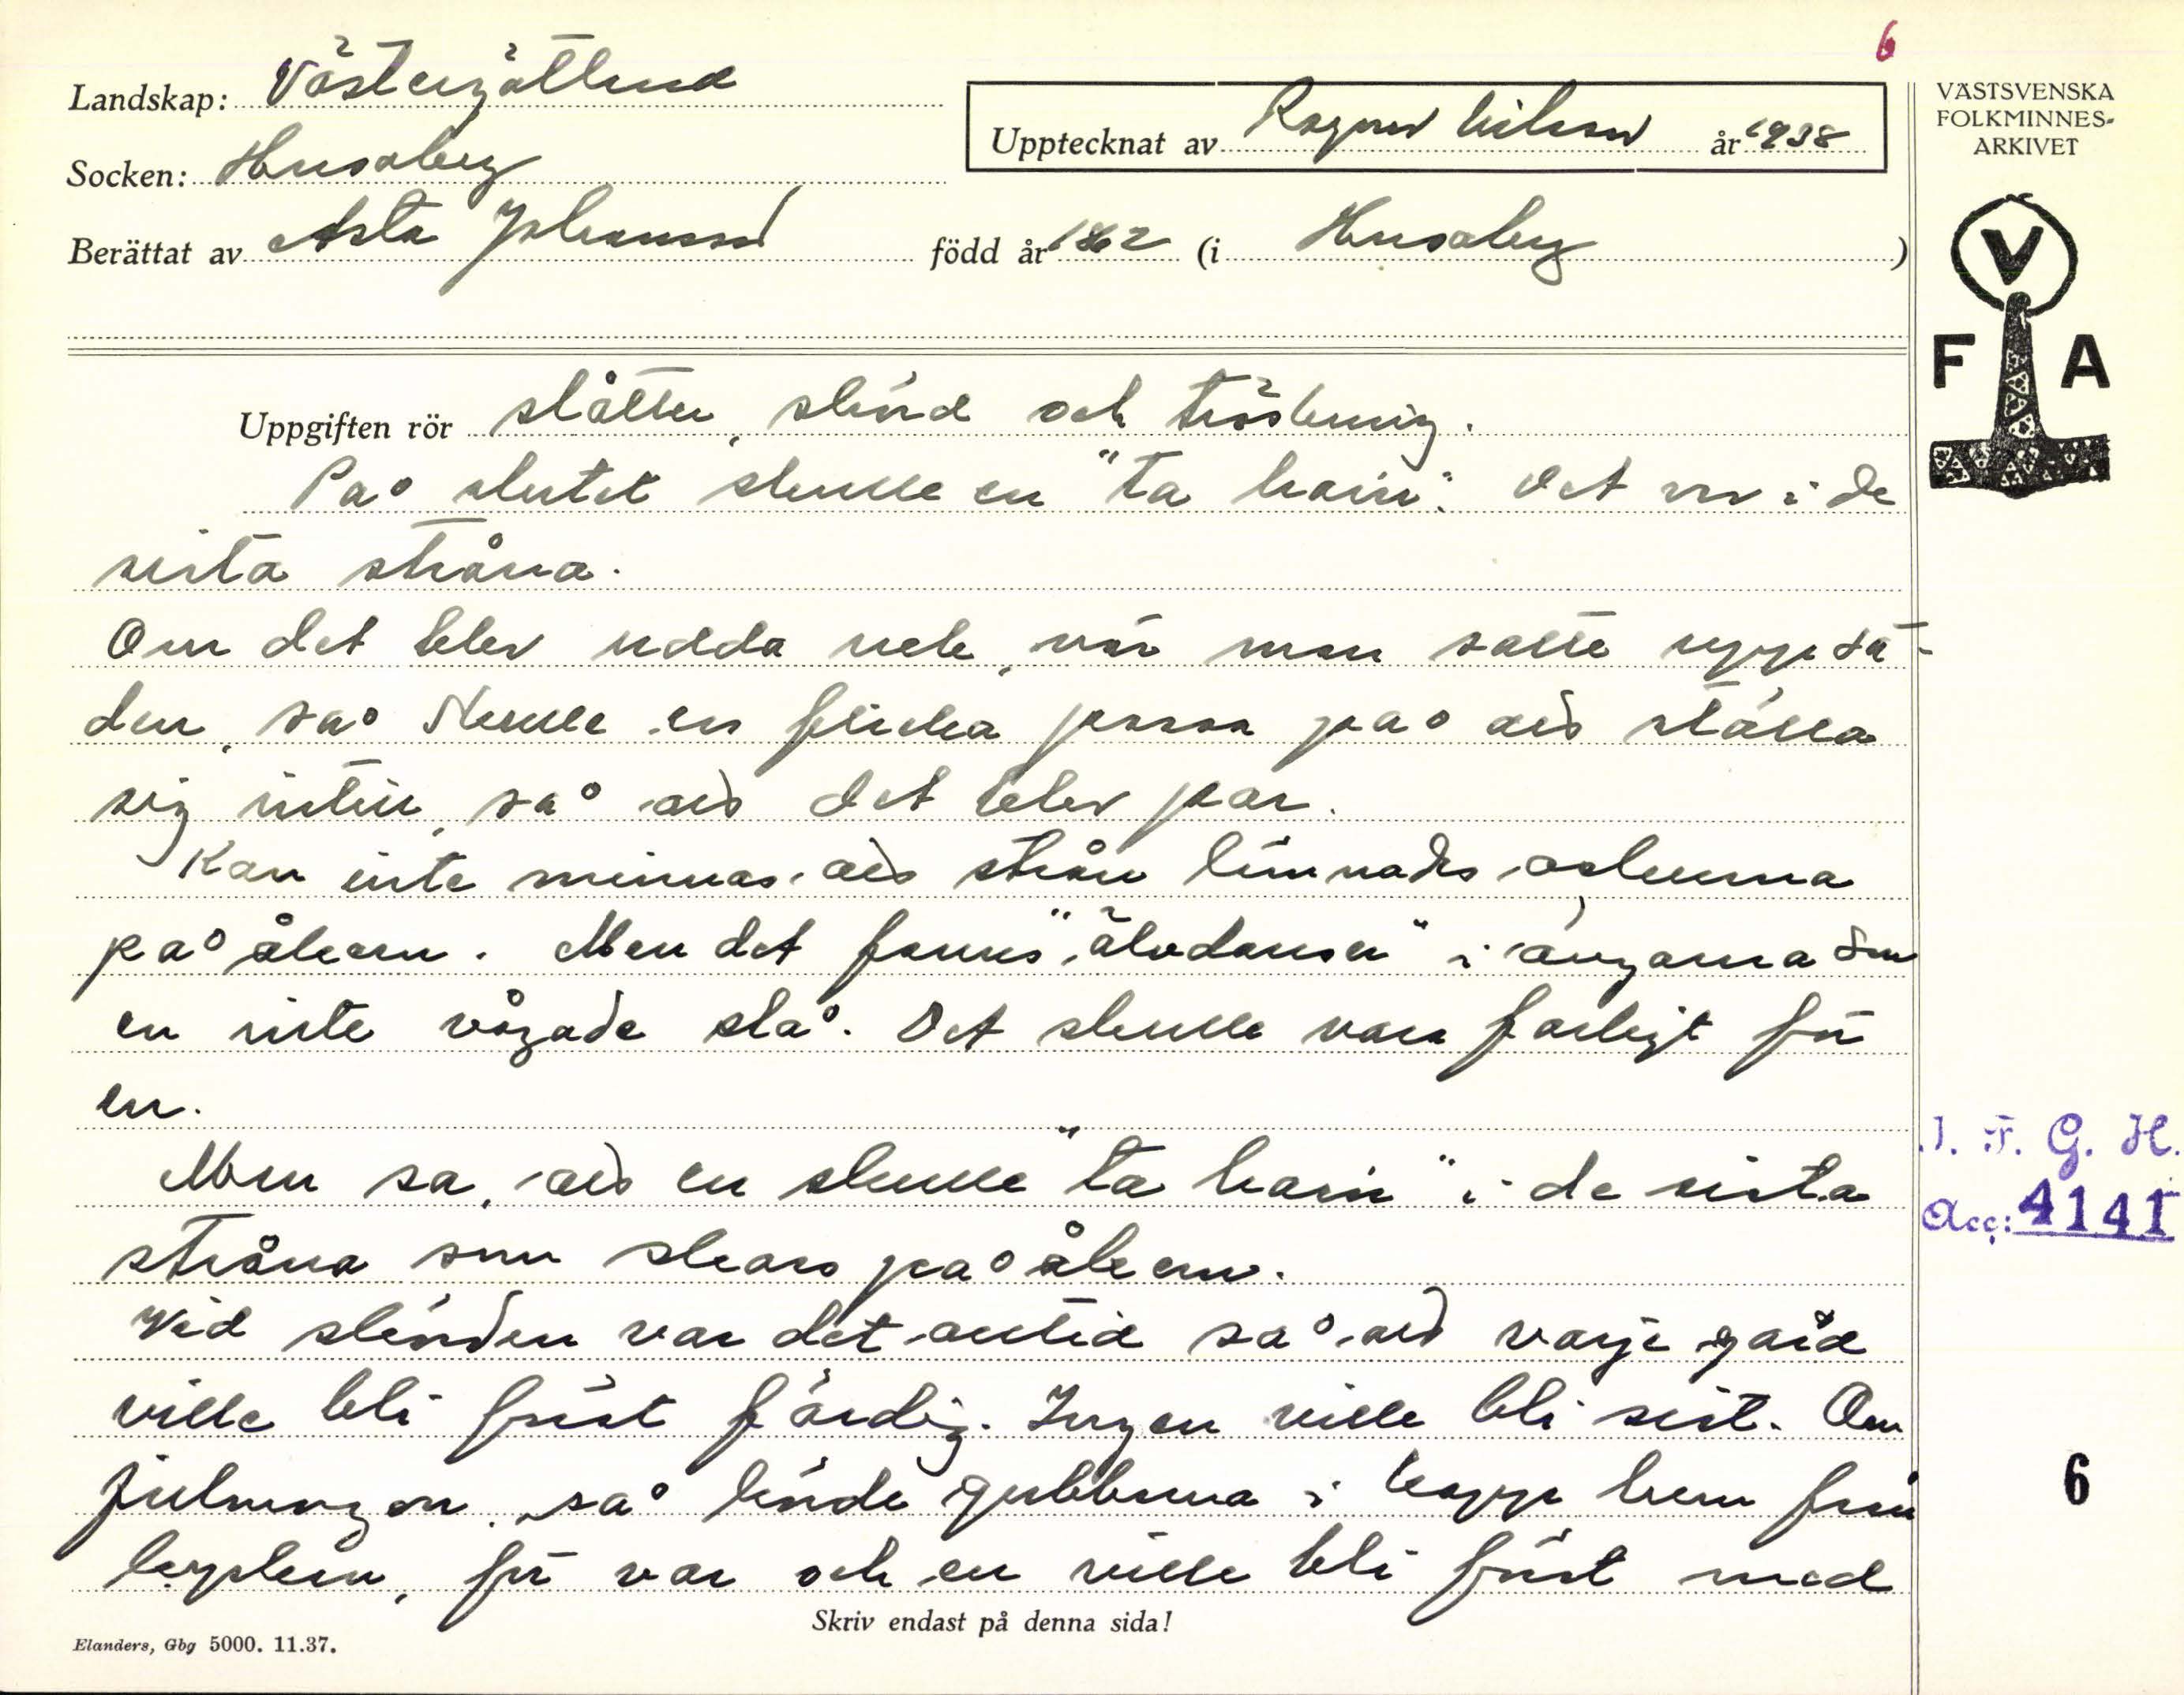 6
Landskap: Västergötland
Upptecknat av Ragnar Nilsson år 1938
VÄSTSVENSKA
FOLKMINNES-
ARKIVET
Socken: Husaby
Berättat av Asta Johansson född år 1862 (i Husaby)
V
F A
Uppgiften rör slåtter, skörd och tröskning.
På slutet skulle en "ta harin". Det var i de
sista stråna.
Om det blev udda nek, när man satte upp sä-
den, så skulle en flicka passa på att ställa
sig intill, så att det blev par.
Kan inte minnas att strån lämnades oskurna
på åkern. Men det fanns "älvdanser" i ängarna som
en inte vågade slå. Det skulle vara farligt för
en.
Men sa, att en skulle "ta harin" i de sista
stråna som skars på åkern.
Vid skörden var det alltid så att varje gård
ville bli först färdig. Ingen ville bli sist. Om
julmorgon, så körde gubbarna i kapp hem från
kyrkan, för var och en ville bli först med
J. F. G. H.
Acc: 4141
6
Skriv endast på denna sida!
Elanders, Gbg 5000. 11.37.